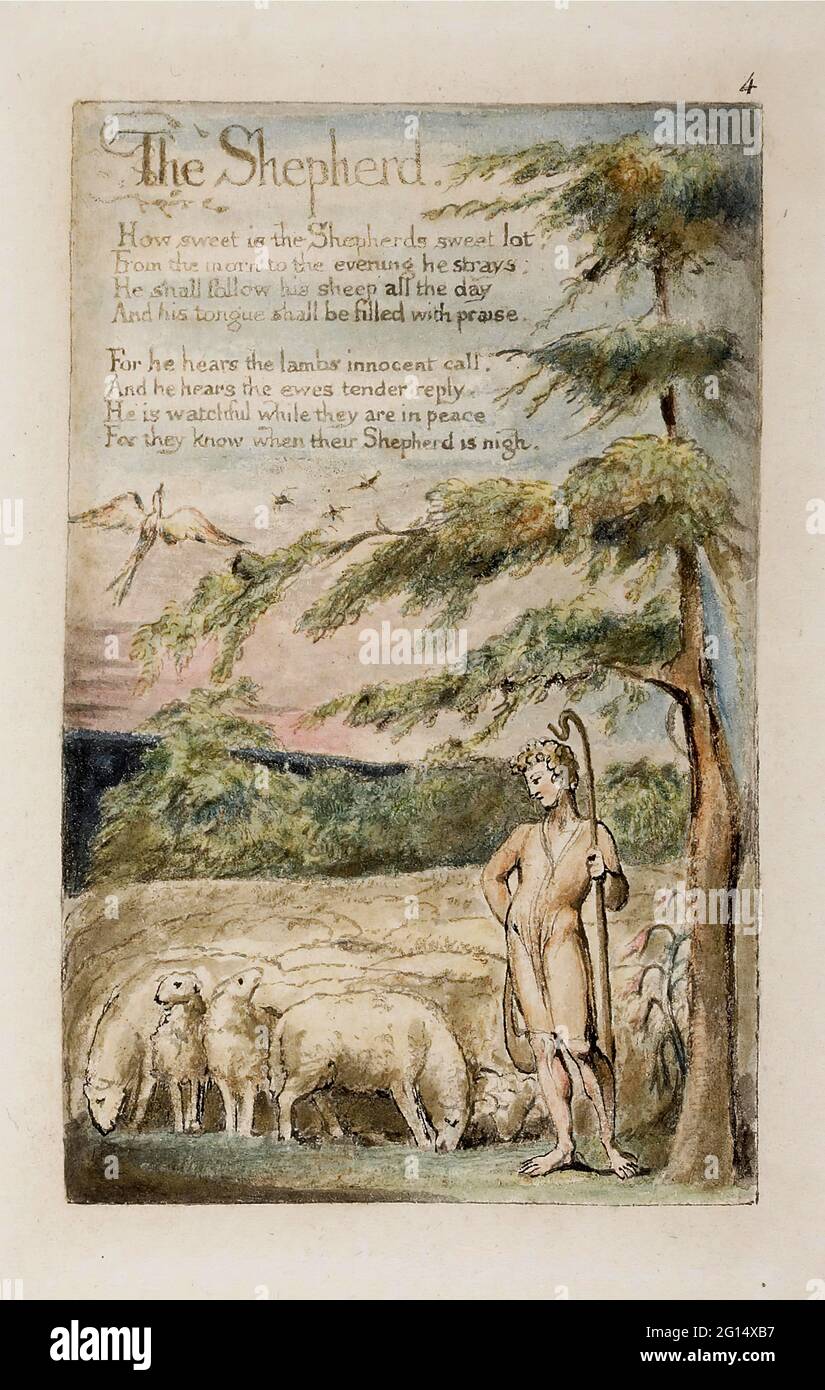 4
The Shepherd.
How sweet is the Shepherds sweet lot,
From the morn to the evening he strays:
He shall follow his sheep all the day
And his tongue shall be filled with praise.
For he hears the lambs innocent call.
And he hears the ewes tender reply.
He is watchful while they are in peace
For they know when their Shepherd is nigh.
a
alamy
a
a
a
alamy
Image ID: 2G14XB7
www.alamy.com